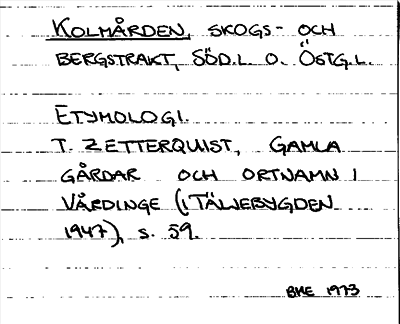 KOLMÅRDEN, SKOGS- OCH
BERGSTRAKT, SÖD.L. O. ÖSTG.L.
ETYMOLOGI.
T. ZETTERQUIST, GAMLA
GÅRDAR OCH ORTNAMN I
VÅRDINGE (I TÄLJEBYGDEN
1947), S. 59.
BME 1973